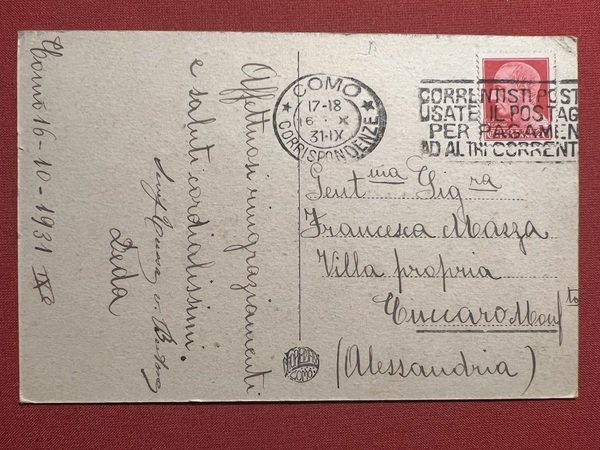 Como 16-10-1931 IX°
Affettuosi ringraziamenti
e saluti cordialissimi.
Deda
COMO
17-18
16 X
31·IX
CORRISPONDENZE
CORRENTISTI POST
USATE IL POSTAG
PER PAGAMEN
AD ALTRI CORRENT
Gent ma Sig ra
Francesca Mazza
Villa propria
Cuccaro Monf to
(Alessandria)
COMO